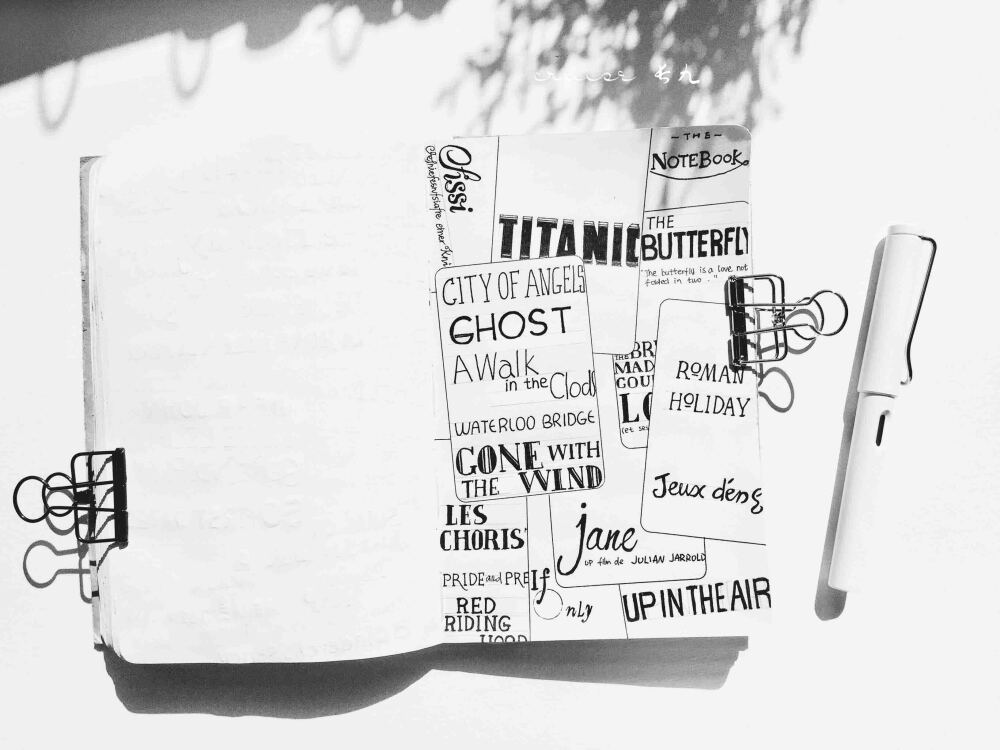 cruise
~THE~
NOTEBOOK
Sissi
TITANIC
THE
BUTTERFLY
"The butterfly is a love not
folded in two."
CITY OF ANGELS
GHOST
A Walk
in the Clods
WATERLOO BRIDGE
GONE WITH
THE WIND
THE BRI
MAD
COU
LO
ROMAN
HOLIDAY
Jeux d'en
LES
CHORIS
jane
un film de JULIAN JARROLD
PRIDE and PRE
If
only
RED
RIDING
HOOD
UP IN THE AIR